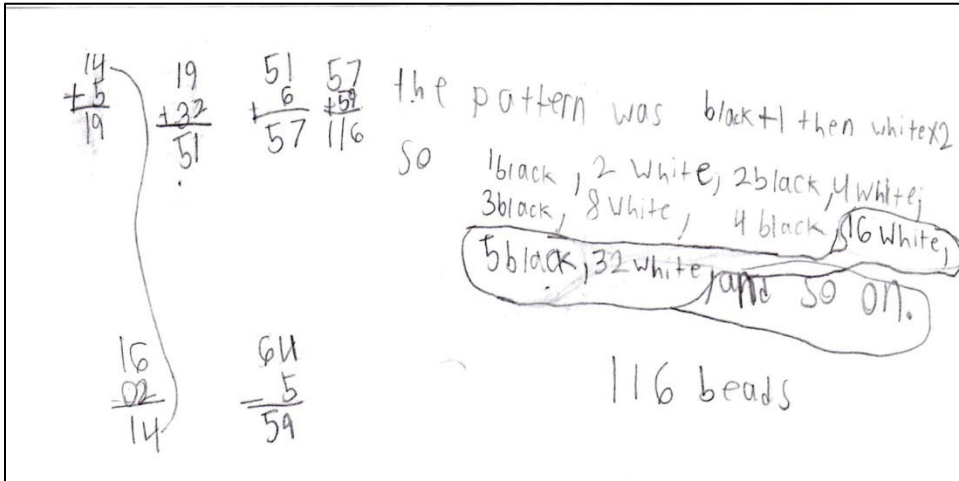 14
+5
19
19
+32
51
51
+ 6
57
57
+59
116
the pattern was black+1 then white×2
so 1black, 2 white, 2black, 4 white,
3black, 8 white, 4 black, 16 white,
5black, 32 white, and so on.
16
-02
14
64
- 5
59
116 beads